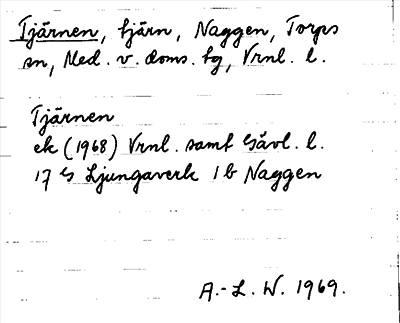 Tjärnen, tjärn, Naggen, Torps
sn, Med. v. doms. tg, Vrnl. l.
Tjärnen
ek (1968) Vrnl. samt Gävl. l.
17 G Ljungaverk 1 b Naggen
A.-L. W. 1969.